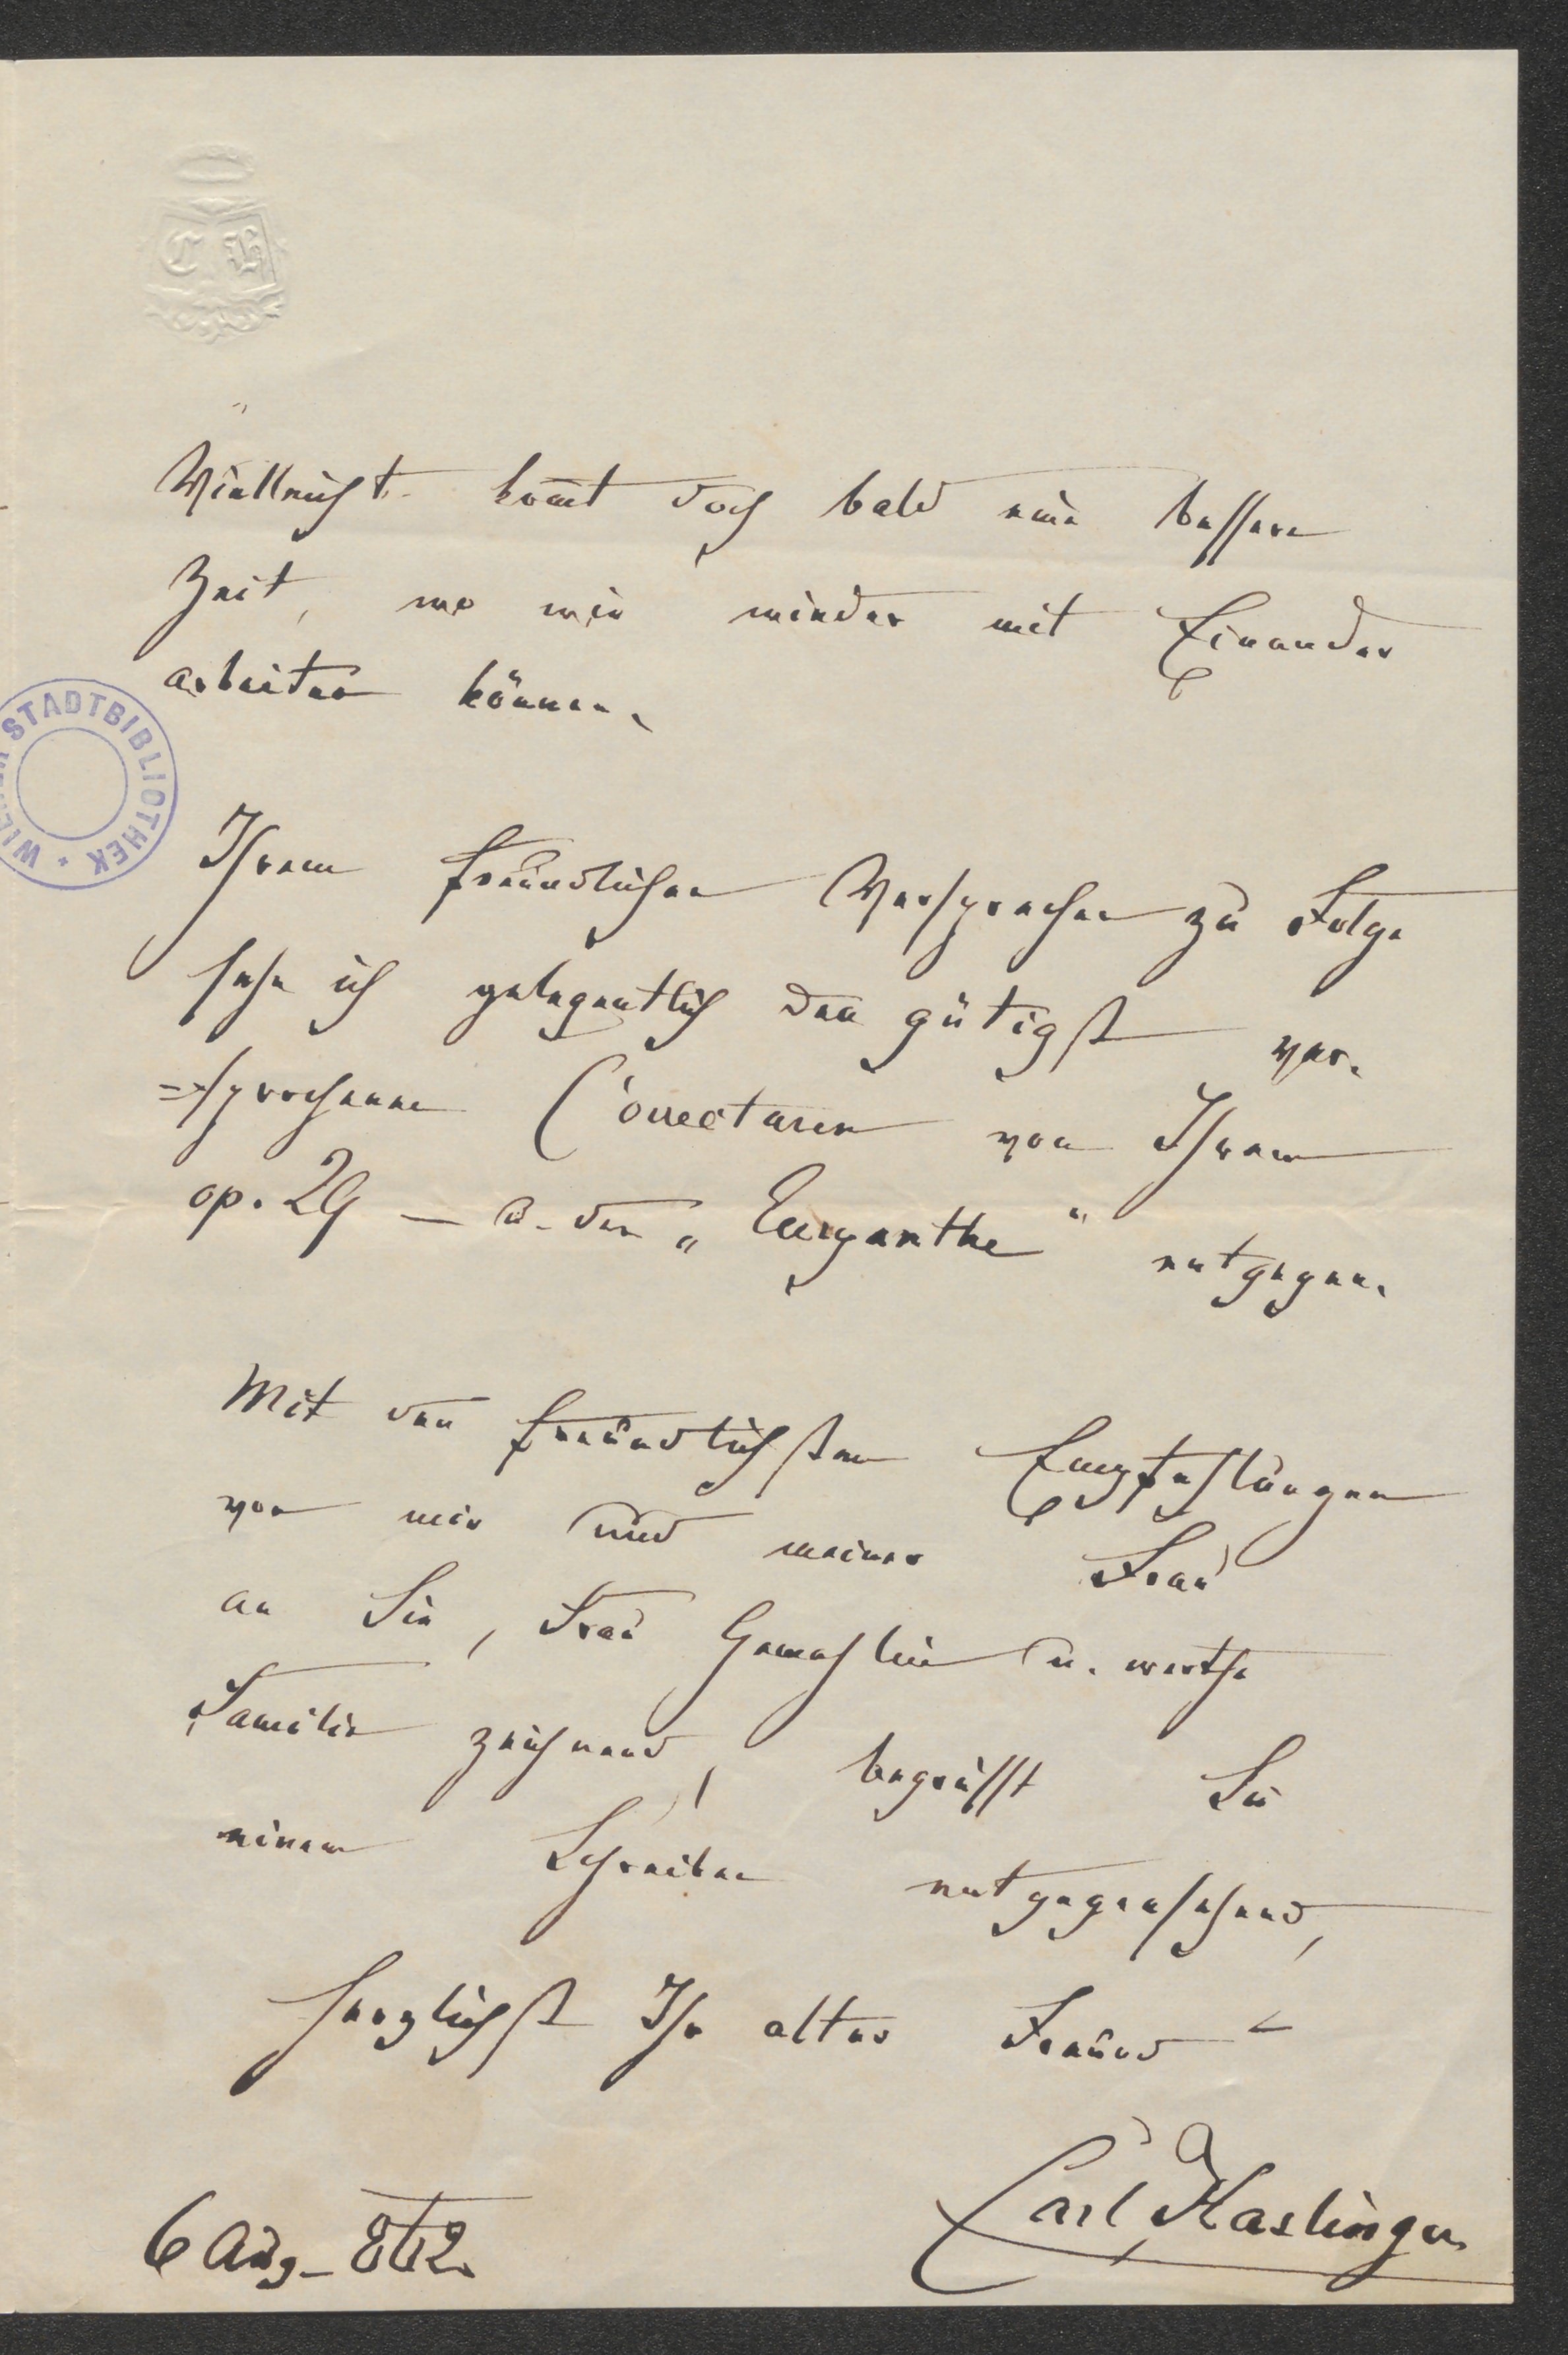 C H
Vielleicht kom̅t doch bald eine bessere
Zeit, wo wir wieder mit Einander
arbeiten können.
WIENER STADTBIBLIOTHEK *
Ihrem freundlichen Versprechen zu Folge
sehe ich gelegentlich den gütigst ver-
=sprochenen Correcturen von Ihrem
op. 29 — u. der „Euryanthe" entgegen.
Mit den freundlichsten Empfehlungen
von mir und meiner Frau
an Sie, Frau Gemahlin u. werthe
Familie zeichnend, begrüsst Sie
einem Schreiben entgegensehend,
herzlichst Ihr alter Freund
Carl Haslinger
6 Aug. 862.